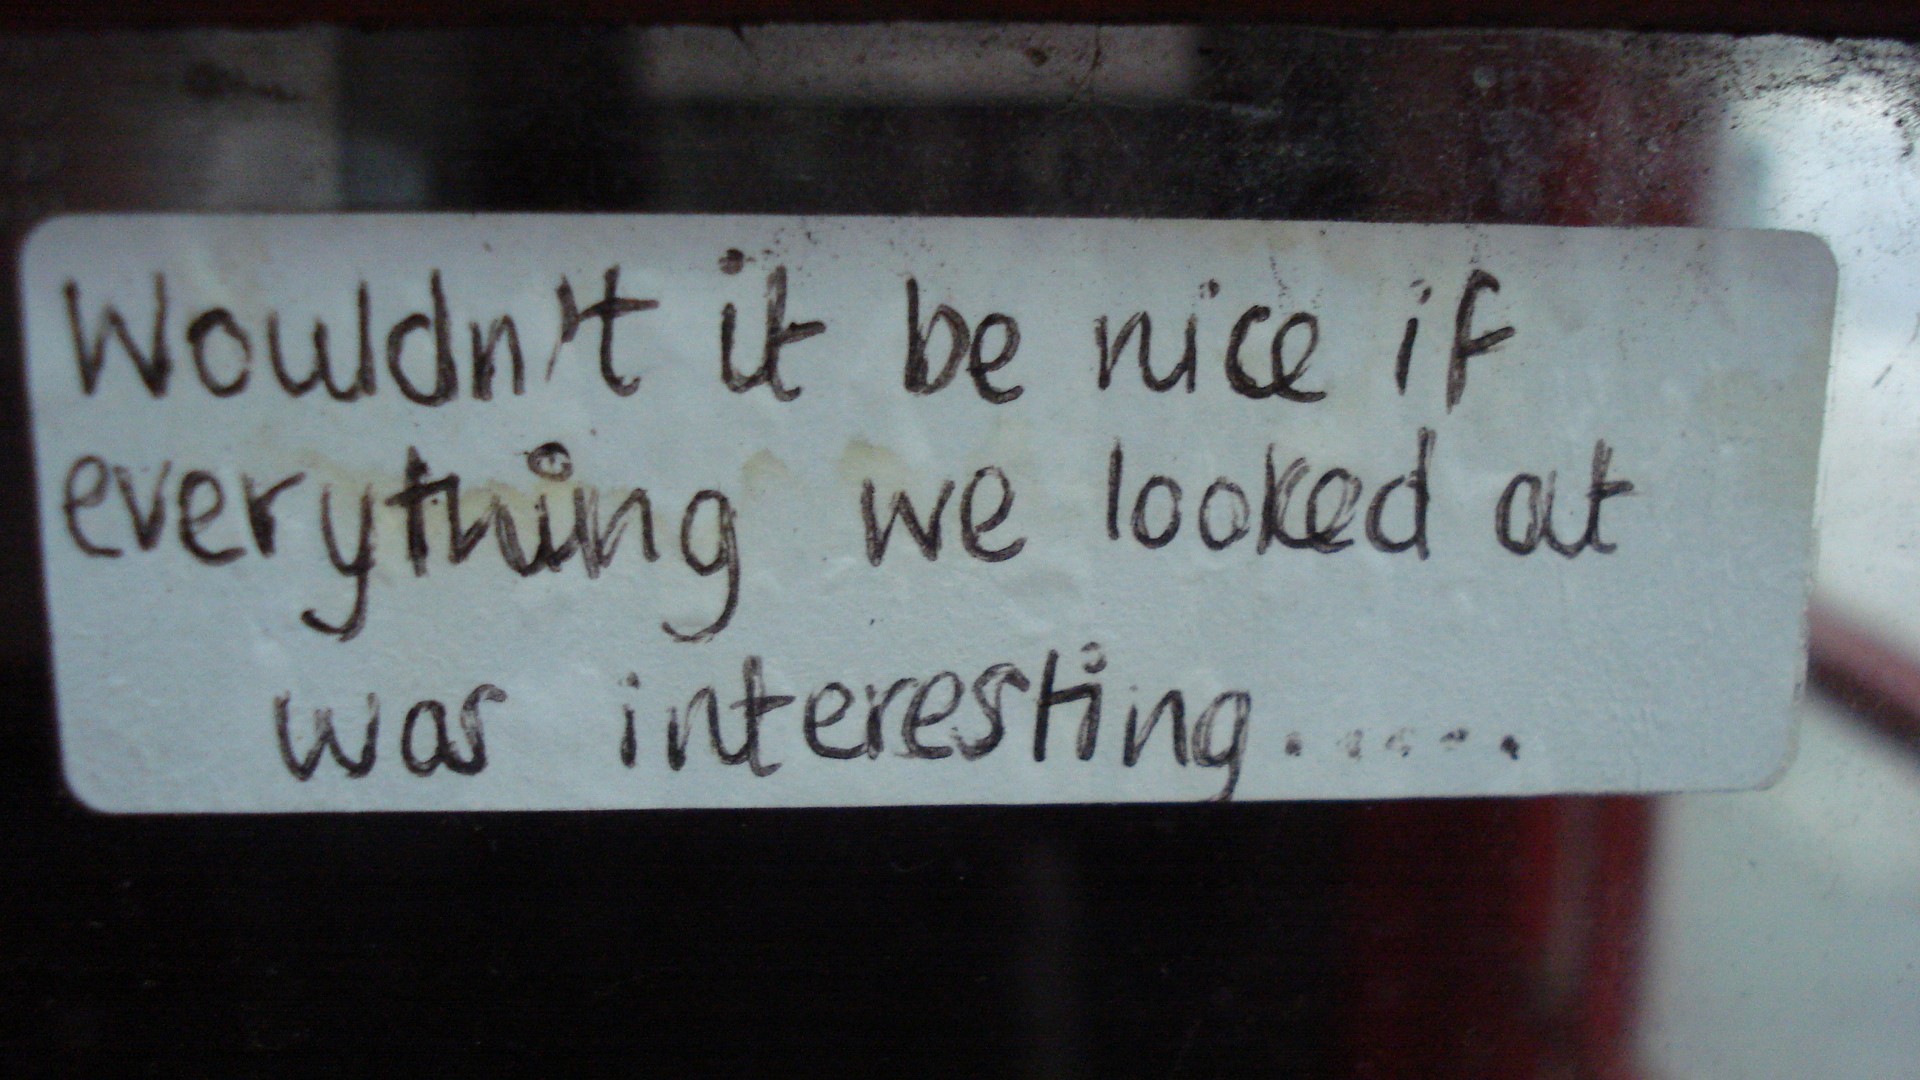 Wouldn't it be nice if
everything we looked at
was interesting.....